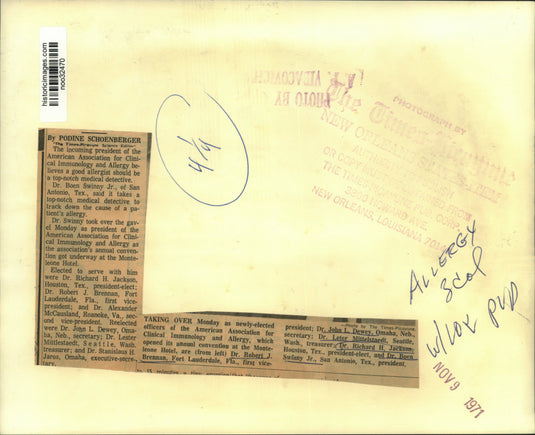 historicimages.com
noo32470
4/9
By PODINE SCHOENBERGER
The Times-Picayune Science Editor
The incoming president of the
American Association for Clini-
cal Immunology and Allergy be-
lieves a good allergist should be
a top-notch medical detective.
Dr. Boen Swinny Jr., of San
Antonio, Tex., said it takes a
top-notch medical detective to
track down the cause of a pa-
tient's allergy.
Dr. Swinny took over the gav-
el Monday as president of the
American Association for Clini-
cal Immunology and Allergy as
the association's annual conven-
tion got underway at the Monte-
leone Hotel.
Elected to serve with him
were Dr. Richard H. Jackson,
Houston, Tex., president-elect;
Dr. Robert J. Brennan, Fort
Lauderdale, Fla., first vice-
president; and Dr. Alexander
McCausland, Roanoke, Va., se-
cond vice-president. Reelected
were Dr. John L. Dewey, Omaha,
Neb., secretary; Dr. Lester
Mittlestaedt, Seattle, Wash.
treasurer; and Dr. Stanislaus H.
Jaros, Omaha, executive-secre-
tary.
TAKING OVER Monday as newly-elected
officers of the American Association for
Clinical Immunology and Allergy, which
opened its annual convention at the Monte-
leone Hotel, are (from left) Dr. Robert J.
Brennan, Fort Lauderdale, Fla., first vice-
Photo by The Times-Picayune
president; Dr. John L. Dewey, Omaha, Neb.,
secretary; Dr. Lester Mittelstaedt, Seattle,
Wash., treasurer; Dr. Richard H. Jackson,
Houston, Tex., president-elect, and Dr. Boen
Swinny Jr., San Antonio, Tex., president.
PHOTO BY
PHOTOGRAPH BY
The Times-Picayune
NEW ORLEANS STATES-ITEM
OR COPY
FROM
THE TIMES-PICAYUNE PUB. CORP.
3800 HOWARD AVE.
NEW ORLEANS, LOUISIANA 70140
ALLERGY
3col
NOV 9 1971